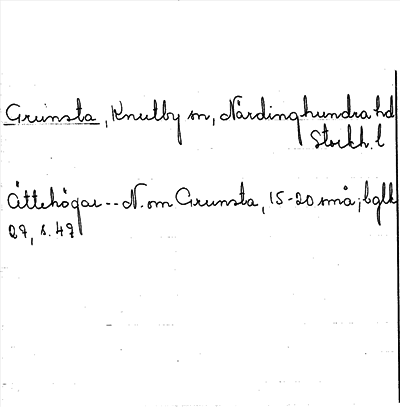 Grünsta, Knutby sn, Närdinghundra hd
Stockh. l
Ättehögar -- N. om Grunsta, 15-20 små; bglk
27, s. 47